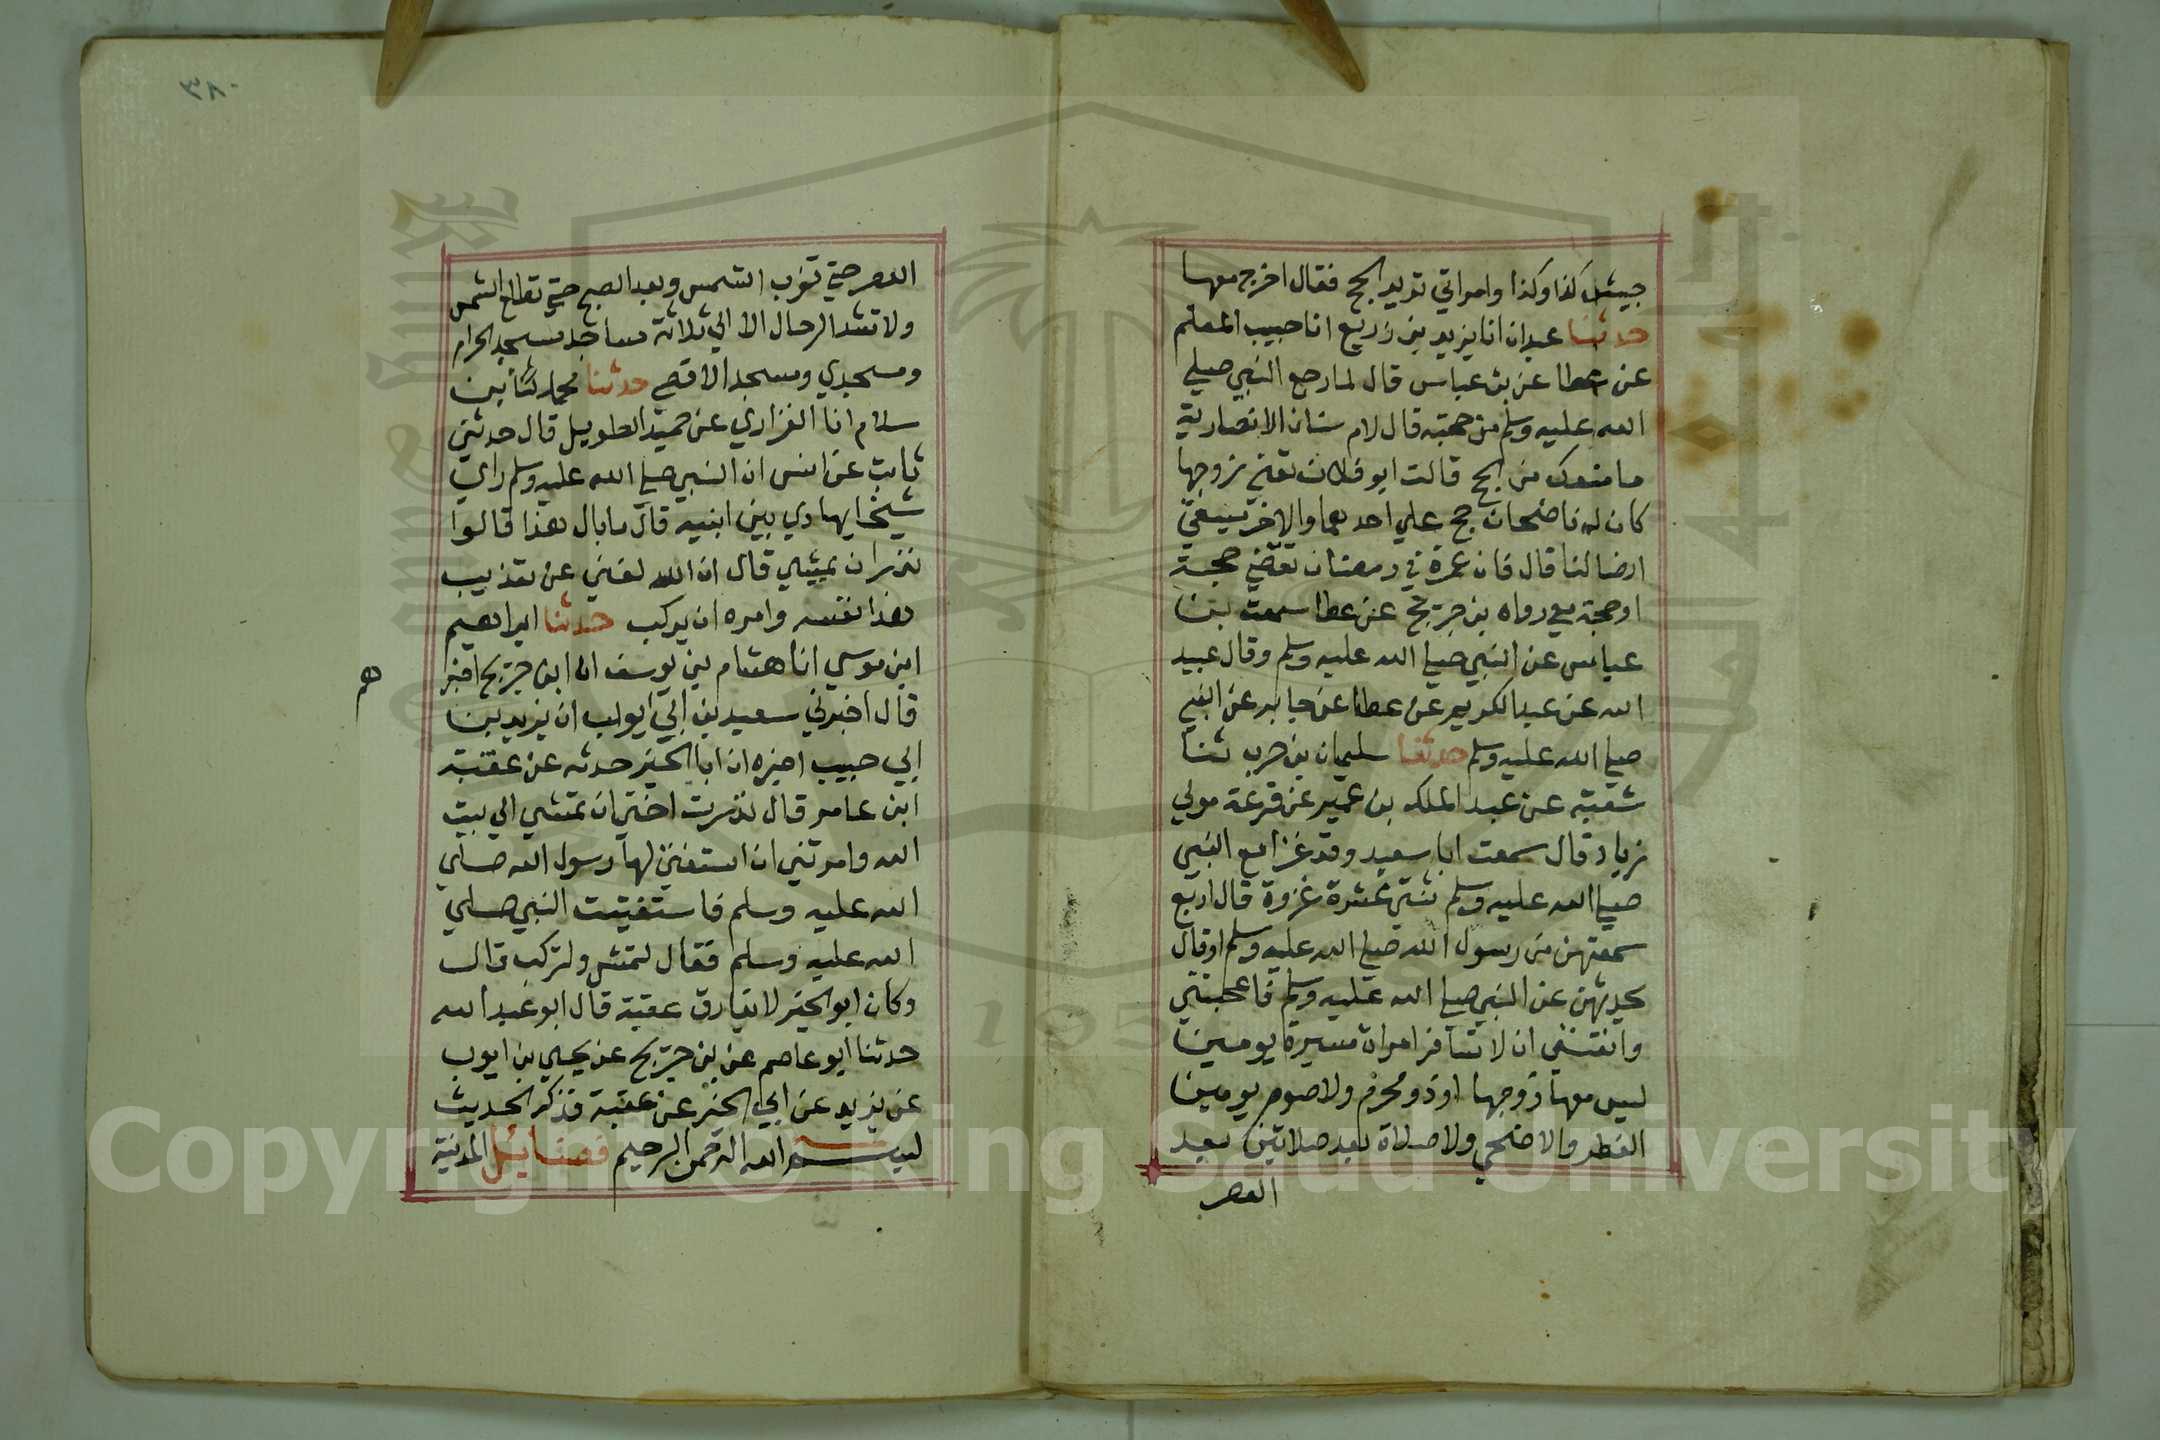 جيش كذا وكذا وامراتي تريد الحج فقال اخرج معها
حدثنا عبدان انا يزيد بن زريع انا حبيب المعلم
عن عطا عن بن عباس قال لما رجع النبي صلي
الله عليه وسلم من حجته قال لام سنان الانصارية
ما منعك من الحج قالت ابو فلان تعني زوجها
كان له ناضحان حج علي احدهما والاخر يسقي
ارضا لنا قال فان عمرة في رمضان تقضي حجة
او حجة معي رواه بن جريج عن عطا سمعت بن
عباس عن النبي صلي الله عليه وسلم وقال عبيد
الله عن عبد الكريم عن عطا عن جابر عن النبي
صلي الله عليه وسلم حدثنا سليمان بن حرب ثنا
شعبة عن عبد الملك بن عمير عن قزعة مولي
زياد قال سمعت ابا سعيد وقد غزا مع النبي
صلي الله عليه وسلم ثنتي عشرة غزوة قال اربع
سمعتهن من رسول الله صلي الله عليه وسلم او قال
يحدثهن عن النبي صلي الله عليه وسلم فاعجبتني
وانقنني ان لا تسافر امراة مسيرة يومين
ليس معها زوجها او ذو محرم ولا صوم يومين
الفطر والاضحي ولا صلاة بعد صلاتين بعد
العصر
٣٨٠
العصر حتي تغرب الشمس وبعد الصبح حتي تطلع الشمس
ولا تشد الرحال الا الي ثلاثة مساجد مسجد الحرام
ومسجدي ومسجد الاقصي حدثنا محمد بن
سلام انا الفزاري عن حميد الطويل قال حدثني
ثابت عن انس ان النبي صلي الله عليه وسلم راي
شيخا يهادي بين ابنيه قال ما بال هذا قالوا
نذر ان يمشي قال ان الله لغني عن تعذيب
هذا نفسه وامره ان يركب حدثنا ابراهيم
ابن موسي انا هشام بن يوسف ان ابن جريج اخبر
هم
قال اخبرني سعيد بن ابي ايوب ان يزيد بن
ابي حبيب اخبره ان ابا الخير حدثه عن عقبة
ابن عامر قال نذرت اختي ان تمشي الي بيت
الله وامرتني ان استفتي لها رسول الله صلي
الله عليه وسلم فاستفتيت النبي صلي
الله عليه وسلم فقال لتمش ولتركب قال
وكان ابو الخير لا يفارق عقبة قال ابو عبد الله
حدثنا ابو عاصم عن بن جريج عن يحيي بن ايوب
عن يزيد عن ابي الخير عن عقبة فذكر الحديث
بسم الله الرحمن الرحيم فضايل المدينة
Copyright © King Saud University